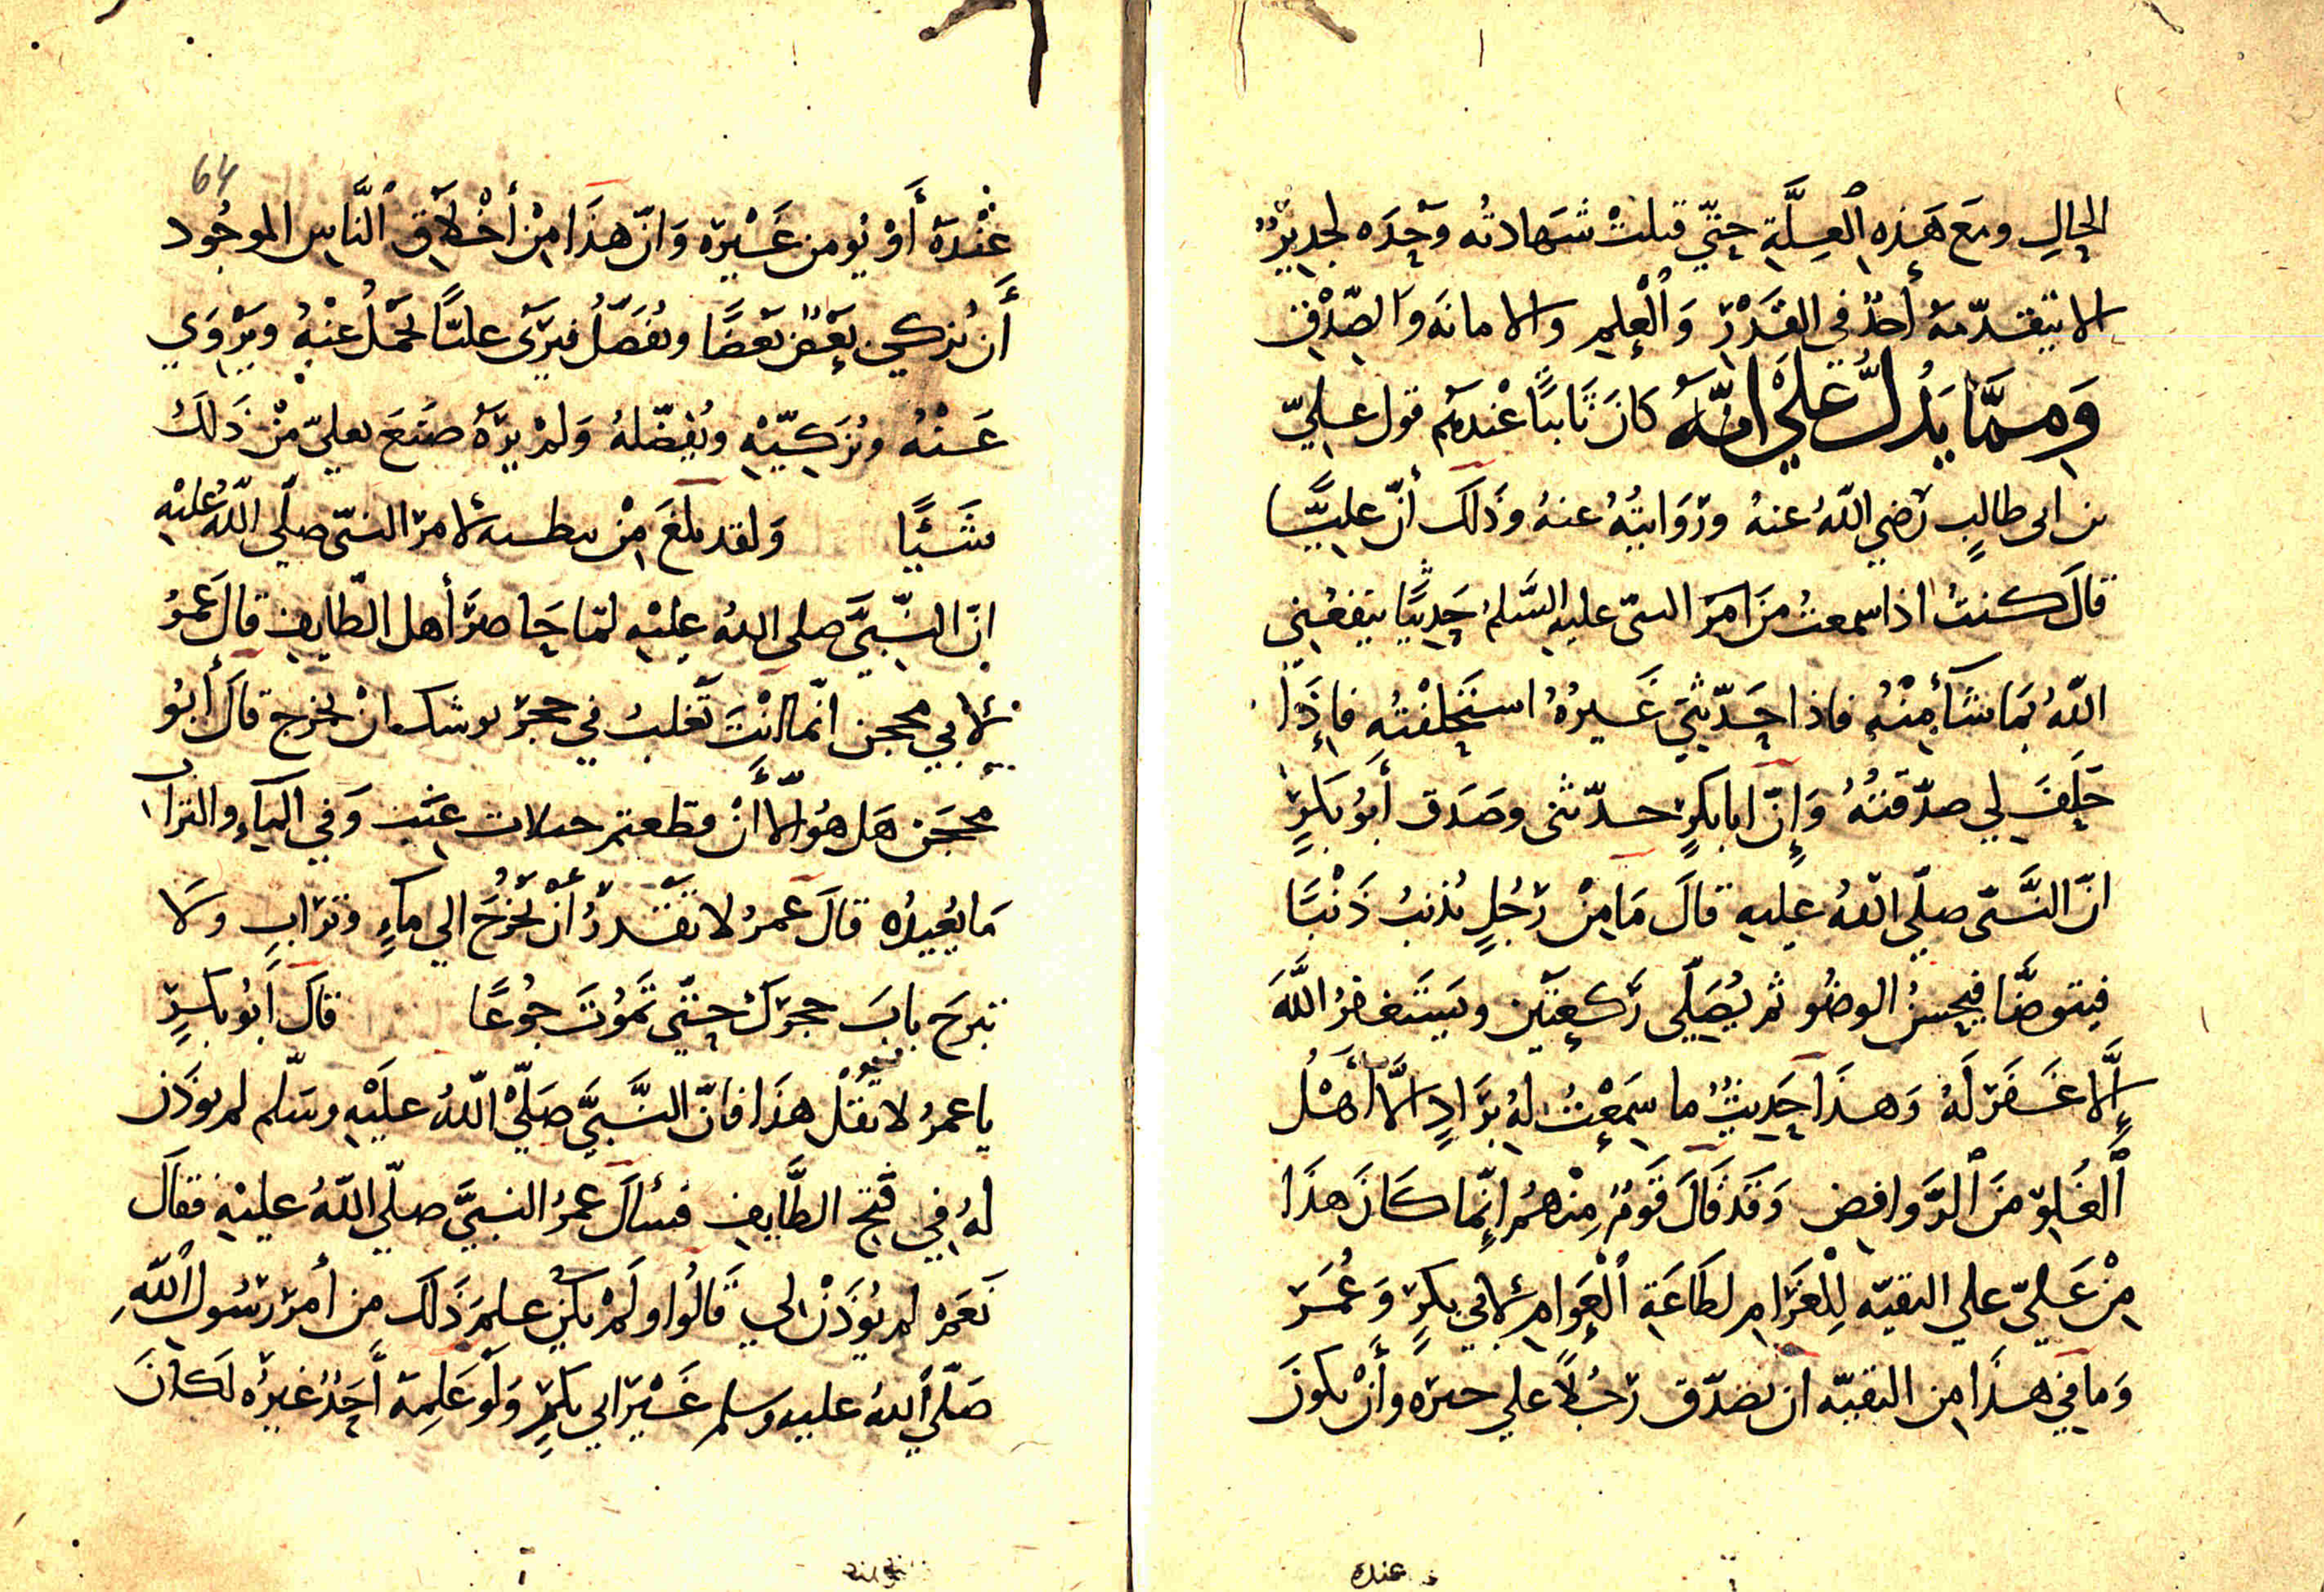 الحالِ ومَع هَذِهِ ٱلعِلَّةِ حتّي قبلتْ شهَادتُه وَحْدَه لجديرٌ
الا يتقدّمهُ أحدٌ في القَدْرِ وَٱلْعِلمِ والامانَه وَالصّدْقِ
وَمِمَّا يَدُلُّ عَلَيْ انّهُ كانَ ثابتًا عْندهُم قول عليّ
بن ابى طالبٍ رَضي اللّهُ عنهُ ورَوَايتُهُ عنهُ وذَلَك أنّ عليًّا
قالَ كنتُ اذا سمعتُ منَ النبىّ عليهِ السَّلمُ حَدِيثًا ينفعُنِي
اللّهُ بَما شَآءَ مِنْهُ فاذا حَدّثنِي غَيرُهُ استحْلفْتُه فإذَا
حَلَفَ لي صدّقتُهُ وَإنّ ابا بكرٍ حدّثنى وصَدَق أَبوُ بَكرٍ
انّ النَّبىّ صلّي اللّهُ عليهِ قالَ مَا مِنْ رَجُلٍ يُذنبُ ذَنْبًا
فيتوضَّا فيحِسنُ الوضُو ثم يُصَلّي رَكعتَيْن ويَستَغفرُ اللَّهَ
إلَّا غَفَرَ لَهُ وَهذَا حَدِيثٌ ما سَمِعْتُ لهُ برَادٍ الَّا أهْلُ
ٱلْغُلوّ منَ ٱلرَّوافِض وَقَدْ قَالَ قَومٌ مِنْهُم انّما كَانَ هذَا
مِنْ عَليّ علي التقيّه لِلْعَوَامِ لطَاعَةِ ٱلْعَوامِ لأبي بكرٍ وَعُمَرَ
وَما في هذَا مِن التقيّه ان يُصَدّق رَجُلاً علي خبره وأَنْ يكونَ
عنده
64
عْنْدَهُ أَوْ يُومن غَيْره وَانّ هذَا مِنْ أخْلاَقِ ٱلنَّاسِ الموجُود
أَن يُزكي بَعْضٌ بَعْضًا ويُفَضّلُ فيَرَى عليًّا يحْمَلُ عنْهُ ويَرْوَي
عَنْهُ ويُزَكِيّهِ ويُفضّلهُ وَلمْ يرَهُ صَنَعَ بعليّ مْنْ ذَلكَ
شَيْئًا وَلقد بَلغَ مِنْ لامر النبىّ صلّي اللّهُ عليْهِ
انّ النَّبيَّ صلى اللهُ عليْهِ لمّا حَاصَرَ أهل الطّايِفِ قالَ عُمَرُ
لأبي محجن انّما انْتَ ثَعْلبٌ في جحَر يوشك انْ يخرج قالَ أَبوُ
محجَن هَل هوُلآءِ أَنْ قطعتم حبلات عنَبٍ وَفي المآءِ والترابِ
مَا يُعيدُه قالَ عمرُ لا تَقدرُ أنْ تَخرُجَ الي مآءٍ وترَابٍ وَلا
تبرحَ بابَ جحرَك حتّي تَمُوتَ جُوعًا قالَ أَبوُ بكرٍ
يا عمرُ لا تقُلْ هذَا فانّ النَّبيَّ صَلّي اللّهُ علَيْهِ وسَلّم لم يوذَن
لهُ في فتح الطَّايفِ فسألَ عمرُ النبيَّ صلّي اللّهُ عليْهِ فقَالَ
نَعَمْ لم يُوذَنْ لي قَالُوا ولَمْ يكن علمَ ذَلَك من أمرِ رَسُول ٱللّهِ
صَلّي اللهُ عليه وسلم غَيْر ابي بكرٍ وَلَو عَلِمهُ أَحَدٌ غيرُه لَكانَ